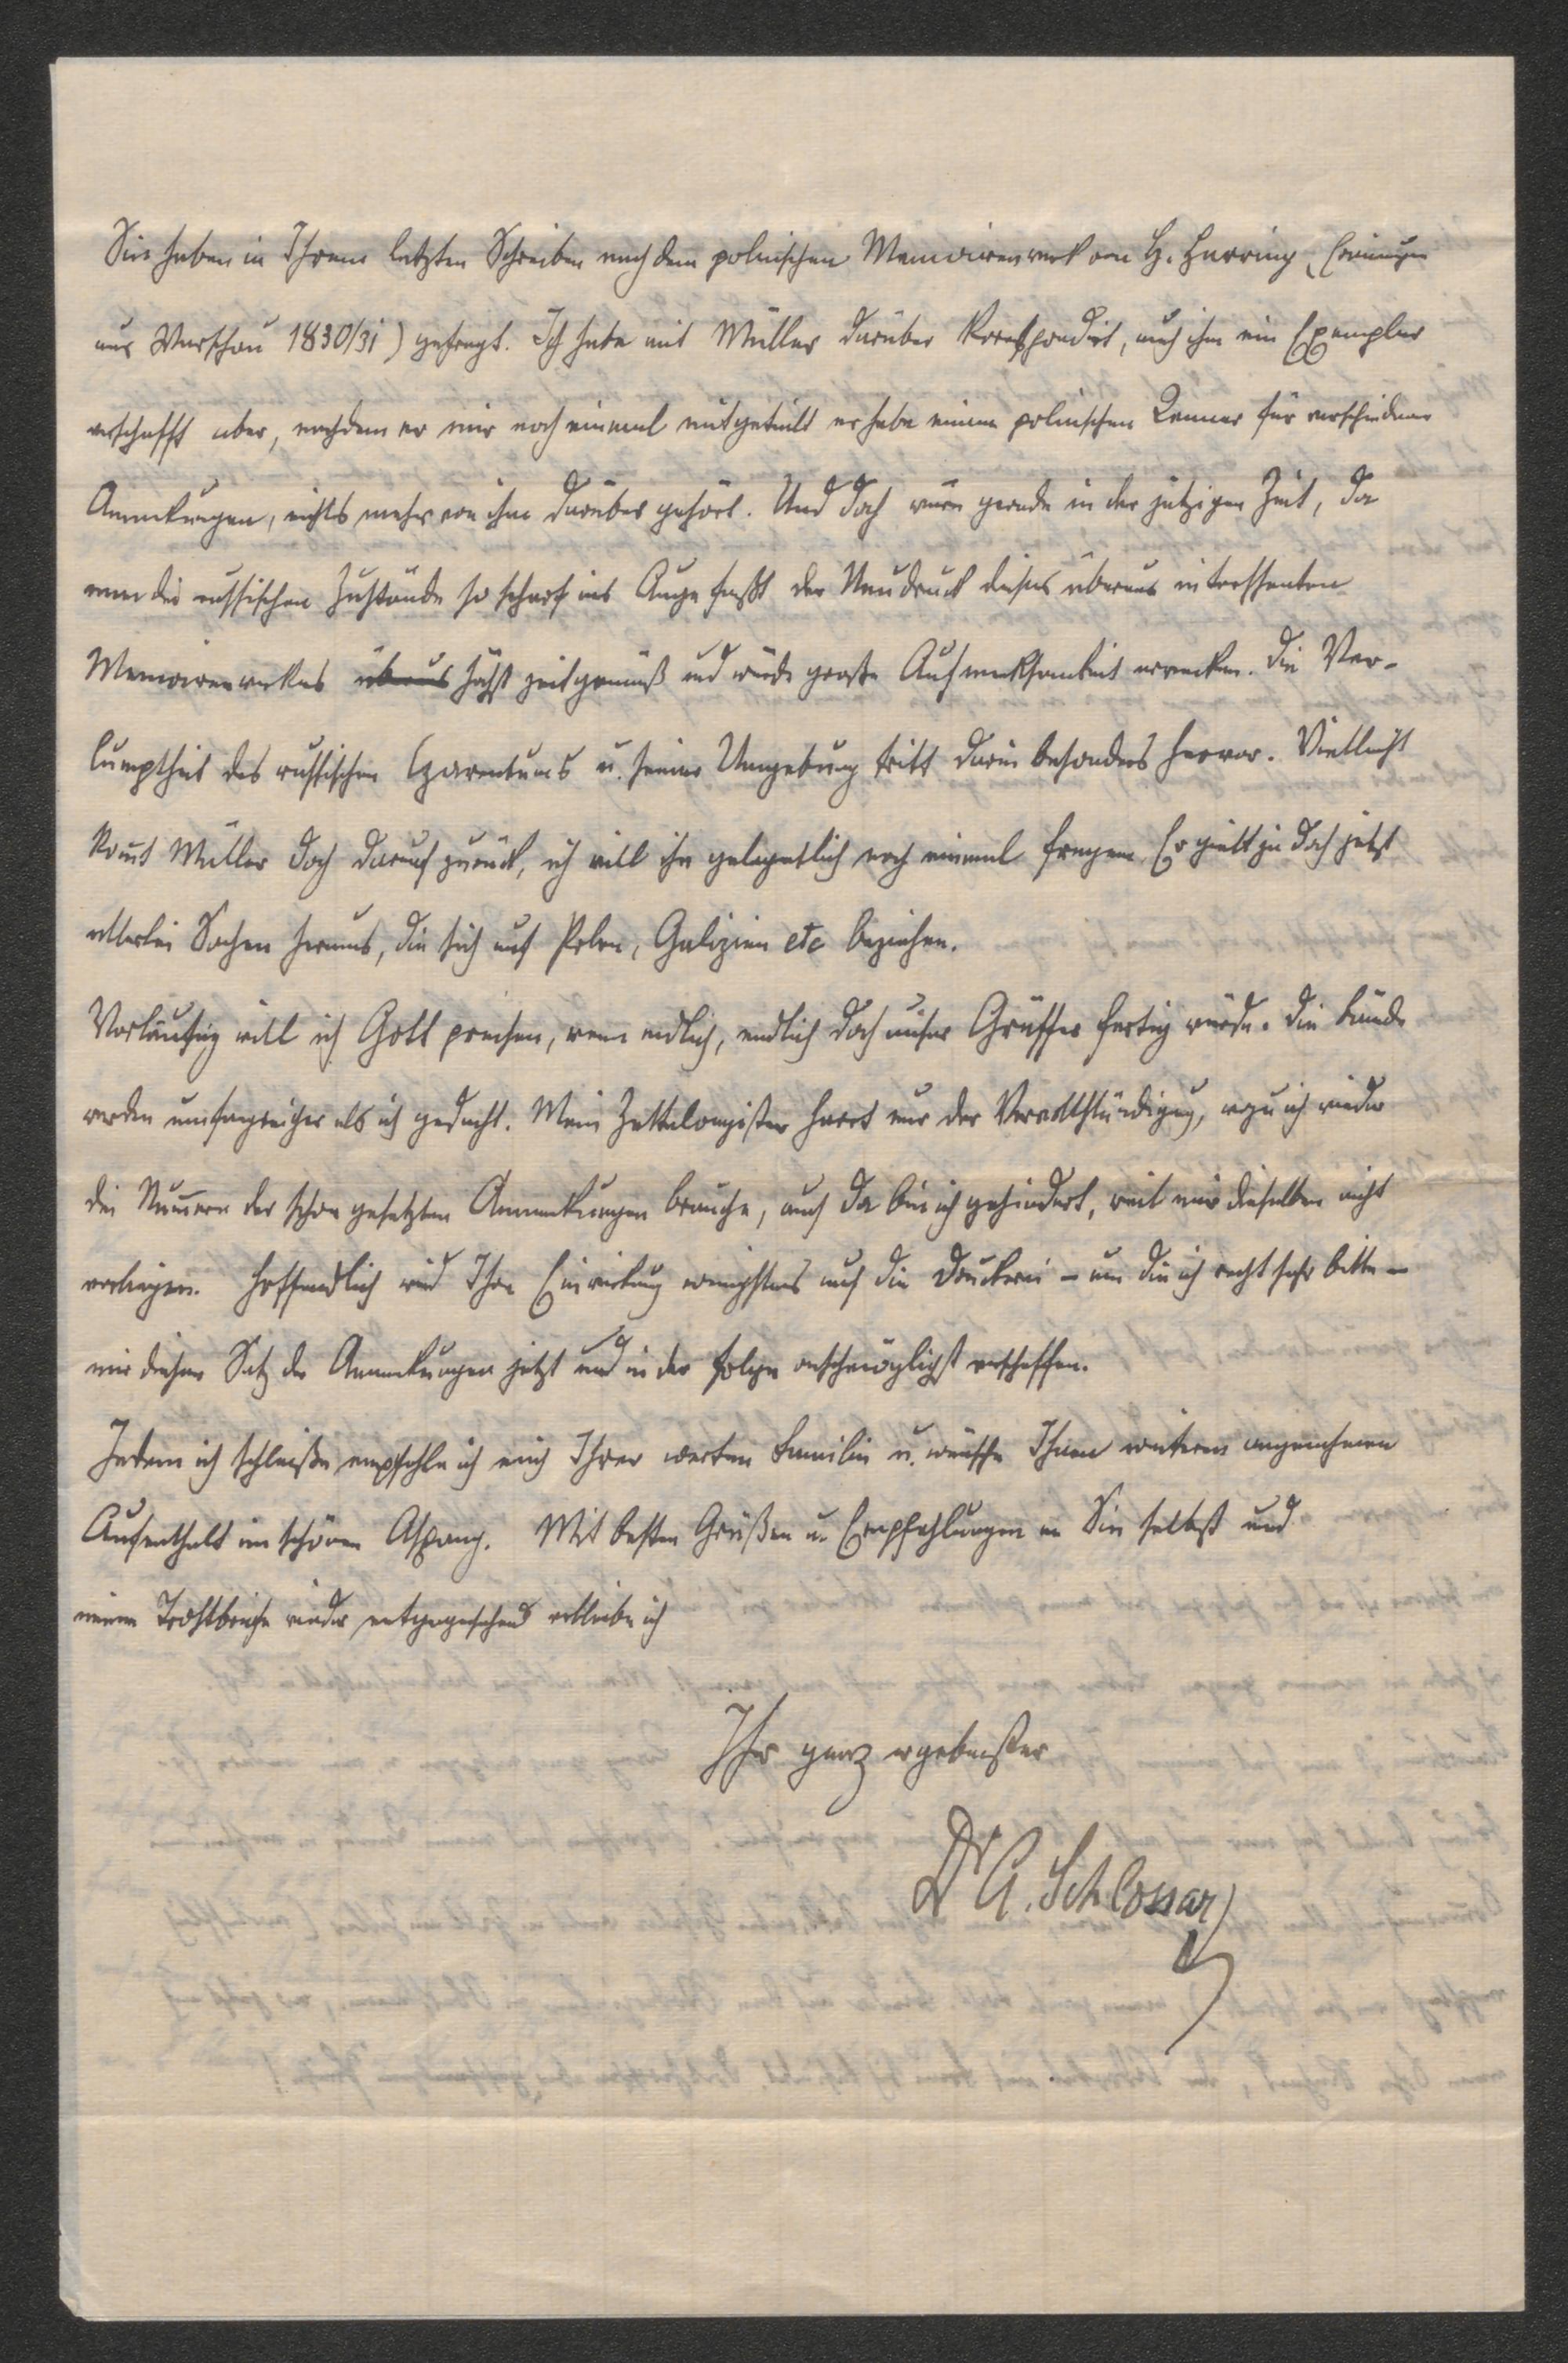 Sie haben in Ihrem letzten Schreiben nach dem polnischen Memoirenwerk von H. Harring (Erinnergen
aus Warschau 1830/31) gefragt. Ich habe mit Müller darüber korrespondirt, auch ihm ein Exemplar
verschafft aber, nachdem er mir noch einmal mitgeteilt er habe einen polnischen Kenner für verschiedene
Anmerkungen, nichts mehr von ihm darüber gehört. Und doch wäre gerade in der jetzigen Zeit, da
man die russischen Zustände so scharf ins Auge faßt der Neudruck dieses überaus interessanten
Memoirenwerkes überaus höchst zeitgemäß und würde große Aufmerksamkeit erwecken. Die Ver-
lumptheit des russischen Czarentums u. seiner Umgebung tritt darin besonders hervor. Vielleicht
komt Müller doch darauf zurück, ich will ihn gelegentlich noch einmal fragen. Er giebt ja doch jetzt
allerlei Sachen heraus, die sich auf Polen, Galizien etc beziehen.
Vorläufig will ich Gott preisen, wenn endlich, endlich doch unser Gräffer fertig würde. Die Bände
werden umfangreicher als ich gedacht. Mein Zettelregister harrt nur der Vervollständigung, wozu ich wieder
die Numern der schon gesetzten Anmerkungen brauche, auch da bin ich gehindert, weil mir dieselben nicht
vorliegen. Hoffendlich wird Ihre Einwirkung wenigstens auf die Druckerei – um die ich recht sehr bitte –
mir diesen Satz der Anmerkungen jetzt und in der Folge baldmöglichst verschaffen.
Indem ich schließe empfehle ich mich Ihrer werten Familie u. wünsche Ihnen weiteren angenehmen
Aufenthalt im schönen Aspang. Mit besten Grüßen u. Empfehlungen an Sie selbst und
einem Trostbriefe wieder entgegensehend verbleibe ich
Ihr ganz ergebenster
Dr A. Schlossar